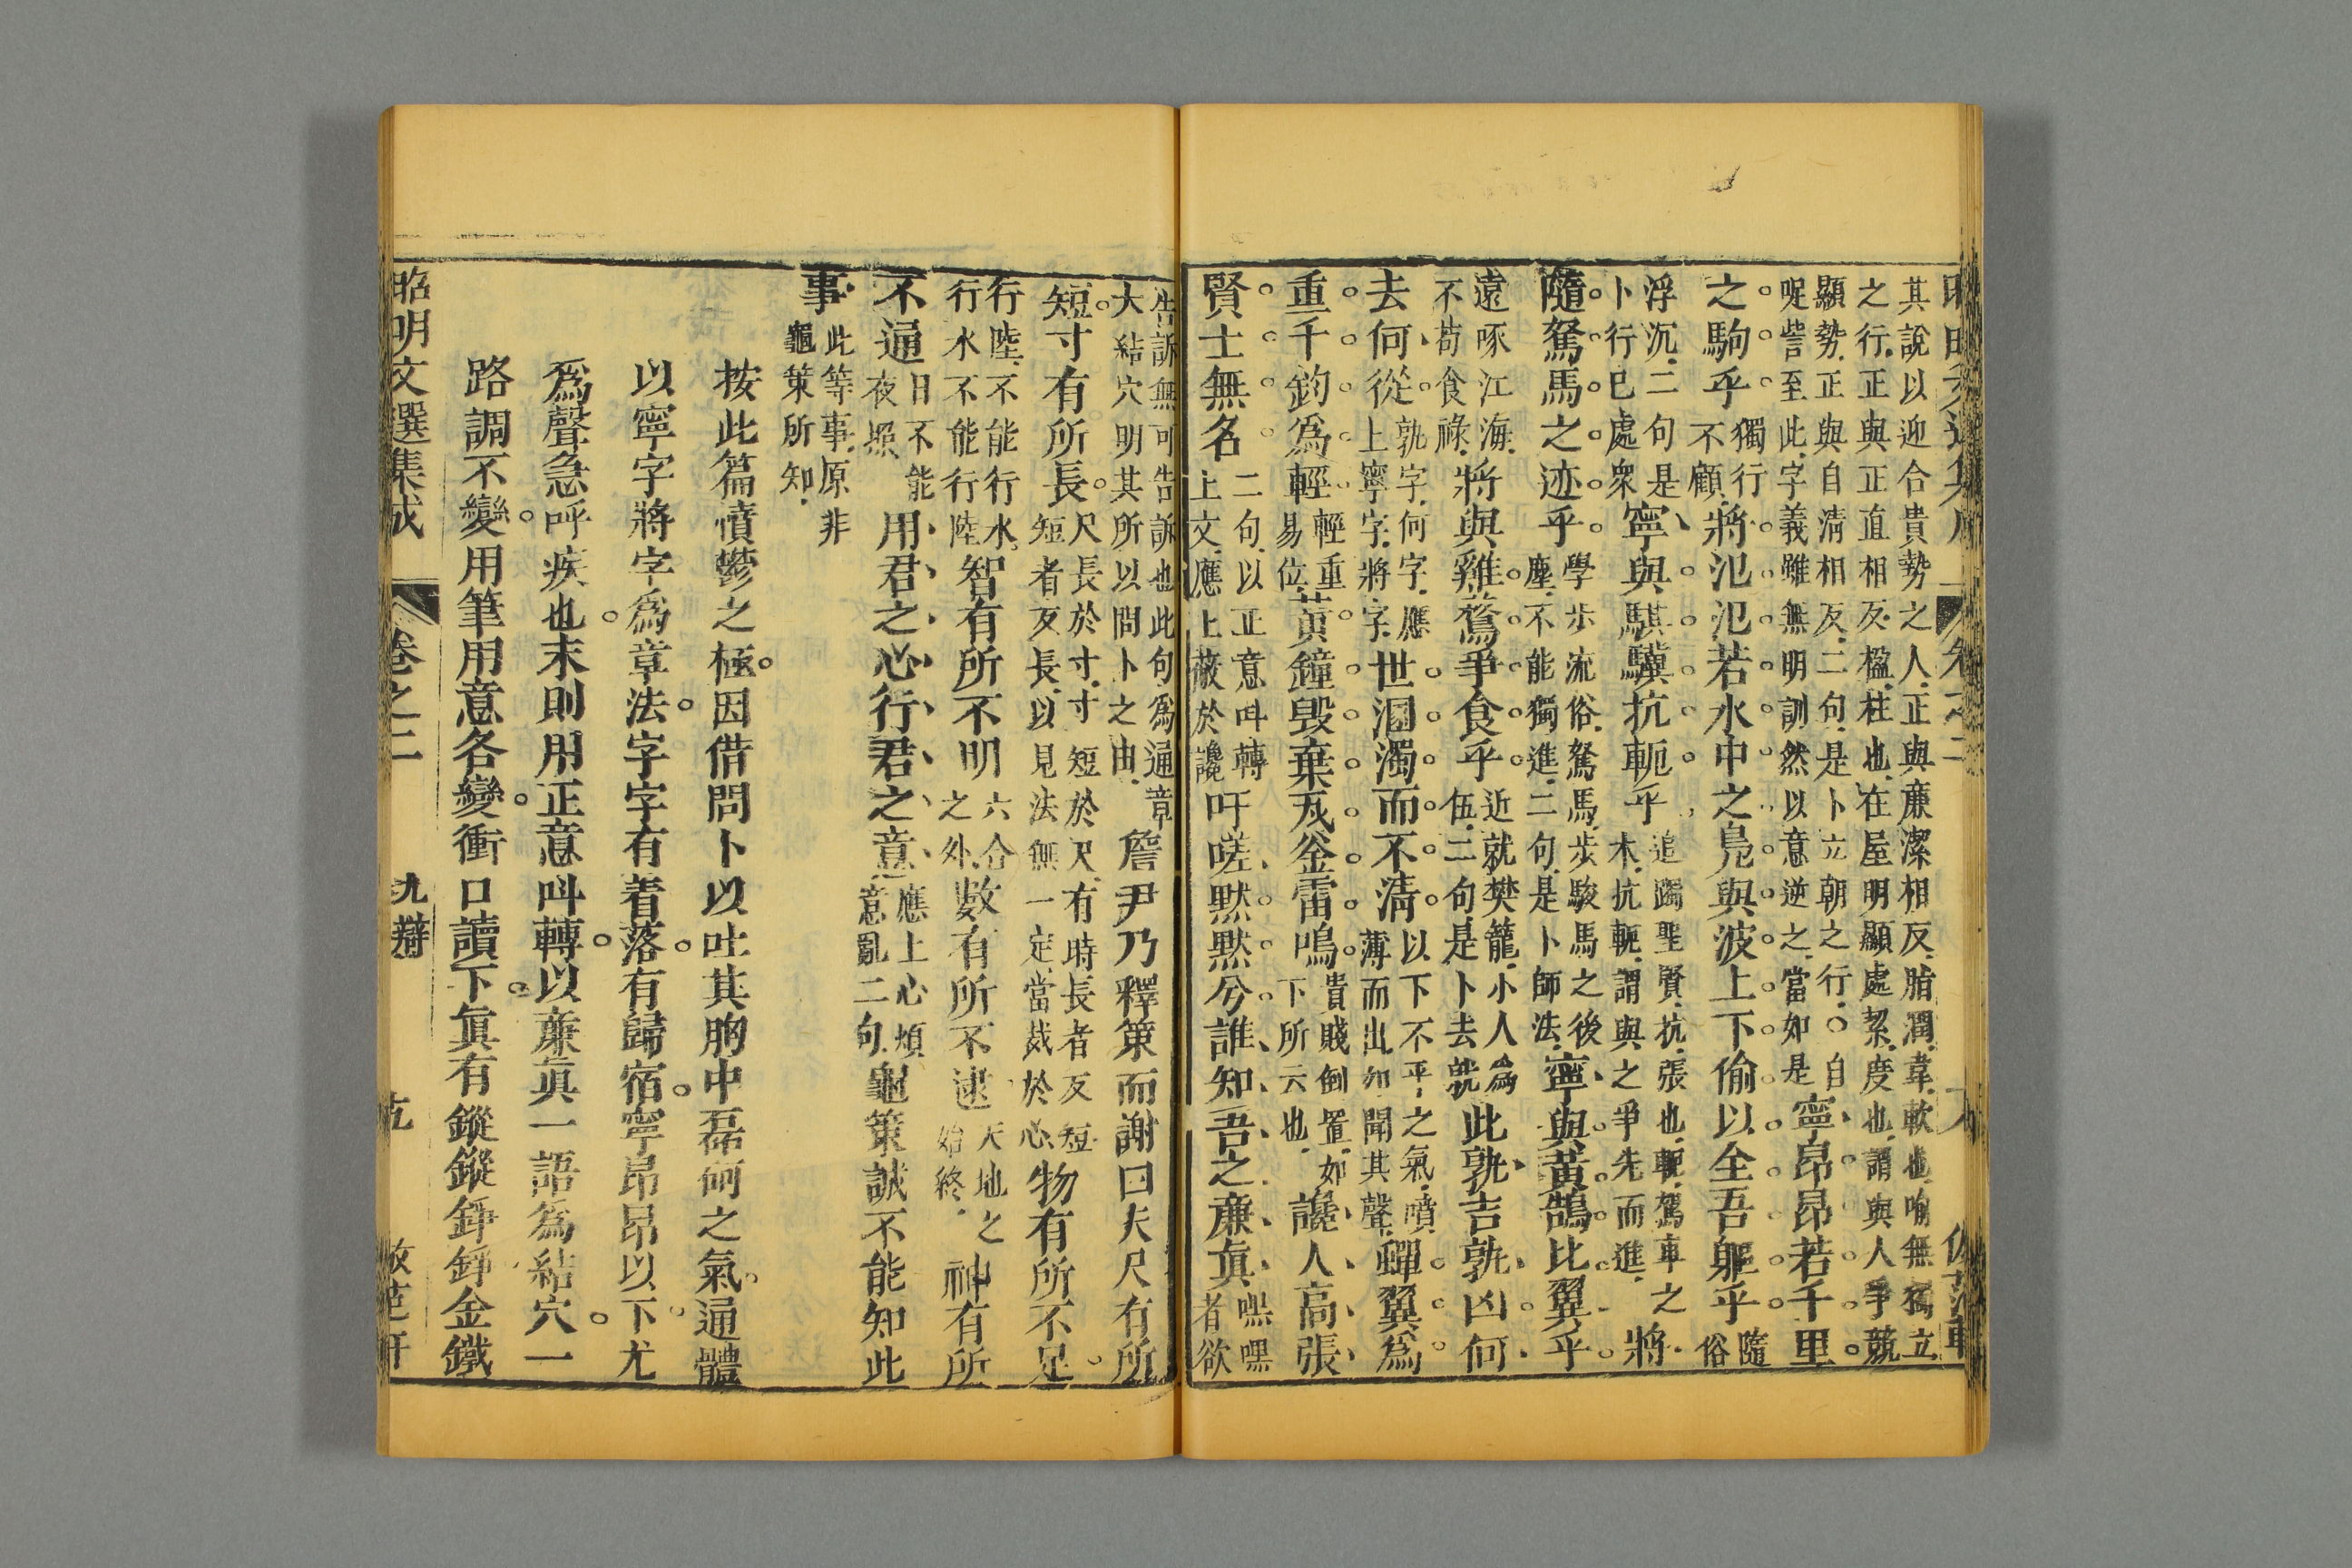 其說以迎合貴勢之人正與廉潔相反脂潤韋軟也喻無獨立
之行正與正直相反楹柱也在屋明顯處絜度也謂與人爭競
顯勢正與自清相反二句是卜立朝之行○自
呢訾至此字義雖無明訓然以意逆之當如是
寧昂昂若千里
之駒乎
獨行
不顧
將氾氾若水中之鳧與波上下偷以全吾軀乎
隨俗
浮沉二句是
卜行己處衆
寧與騏驥抗軛乎
追躅聖賢抗張也軛駕車之
木抗軛謂與之爭先而進
將
隨駑馬之迹乎
學步流俗駑馬步駿馬之後
塵不能獨進二句是卜師法
寧與黃鵠比翼乎
遠啄江海
不苟食祿
將與雞鶩爭食乎
近就樊籠小人爲
伍二句是卜去就
此孰吉孰凶何
去何從
孰字何字應
上寧字將字
世溷濁而不清
以下不平之氣噴
薄而出如聞其聲
蟬翼爲
重千鈞爲輕
輕重
易位
黃鐘毀棄瓦釜雷鳴
貴賤倒置如
下所云也
讒人高張
賢士無名
二句以正意叫轉
上文應上蔽於讒
吁嗟默默兮誰知吾之廉眞
嘿嘿
者欲
告訴無可告訴也此句爲通章
大結穴明其所以問卜之由
詹尹乃釋策而謝曰夫尺有所
短寸有所長
尺長於寸寸短於尺有時長者反短
短者反長以見法無一定當裁於心
物有所不足
行陸不能行水
行水不能行陸
智有所不明
六合
之外
數有所不逮
天地之
始終
神有所
不通
日不能
夜照
用君之心行君之意
應上心煩
意亂二句
龜策誠不能知此
事
此等事原非
龜策所知
按此篇憤鬱之極因借問卜以吐其胸中磊砢之氣通體
以寧字將字爲章法字字有着落有歸宿寧昂昂以下尤
爲聲急呼疾也末則用正意叫轉以廉眞一語爲結穴一
路調不變用筆用意各變衝口讀下眞有鏦鏦錚錚金鐵
昭明文選集成 卷之二 九辯